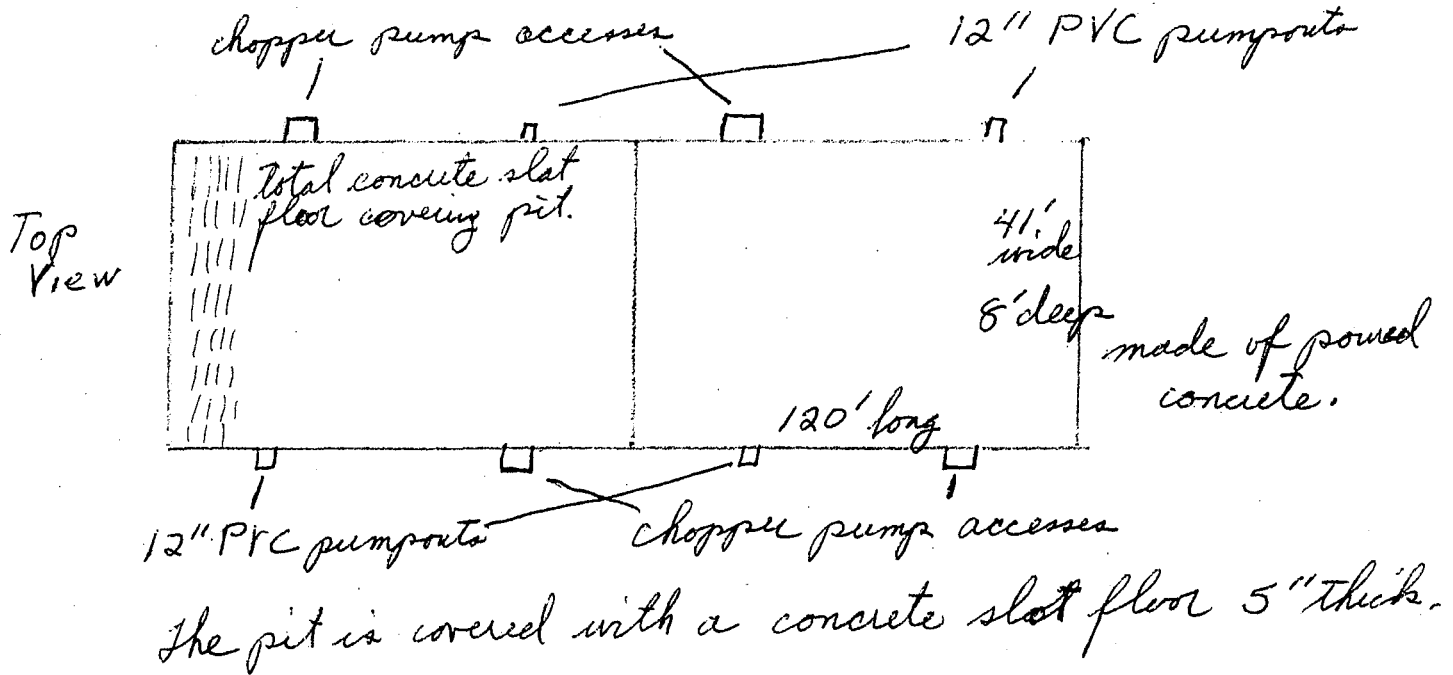 chopper pump accesses
12" PVC pumpouts
total concrete slat
floor covering pit.
Top
View
41'
wide
8' deep
made of poured
concrete.
120' long
12" PVC pumpouts
chopper pump accesses
The pit is covered with a concrete slat floor 5" thick.